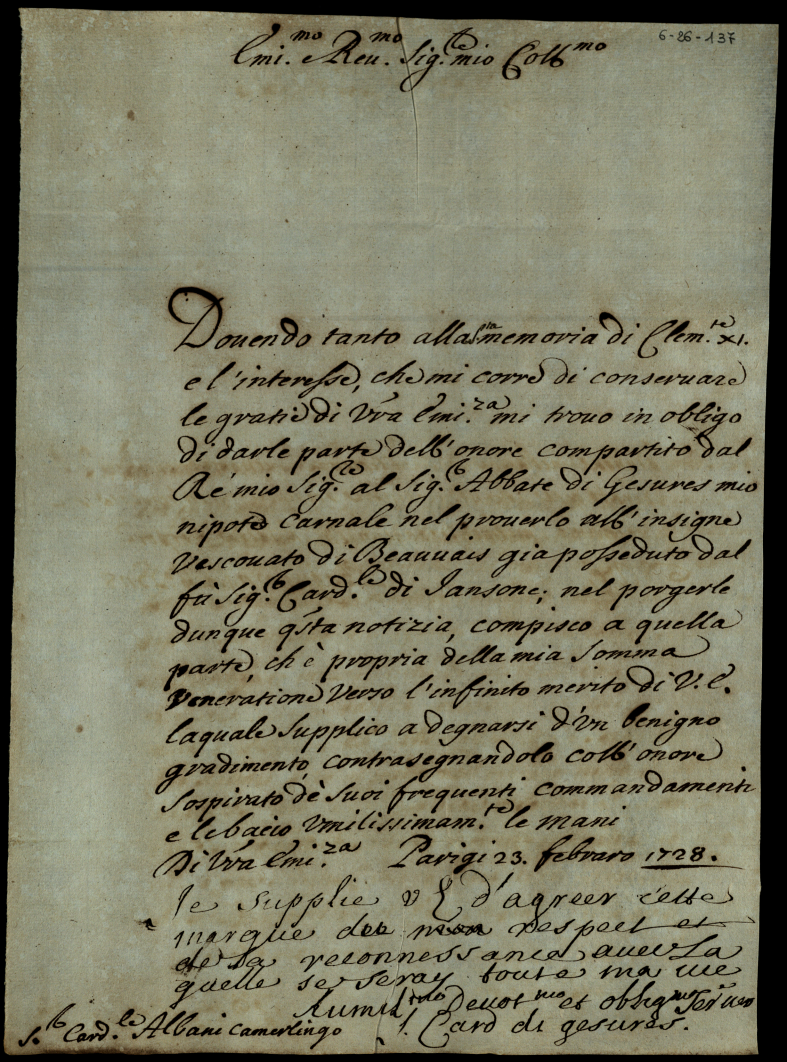 6-26-137
Emi.mo e Reu.mo Sig.re mio Coll.mo
Douendo tanto alla S.ta memoria di Clem.te XI.
e l'interesse, che mi corre di conseruare
le gratie di Vr̃a Emi.za mi trouo in obligo
di darle parte dell'onore compartito dal
Rè mio Sig.re al Sig.r Abbate di Gesures mio
nipote carnale nel prouerlo all'insigne
Vescouato di Beauuais gia posseduto dal
fù Sig.r Card.le di Iansone; nel porgerle
dunque q̃sta notizia, compisco a quella
parte, ch'è propria della mia somma
Veneratione verso l'infinito merito di V.E.
la quale supplico a degnarsi d'vn benigno
gradimento, contrasegnandolo coll'onore
sospirato dè suoi frequenti commandamenti
e le bacio vmilissimam.te le mani
Di Vr̃a Emi.za Parigi 23. febraro 1728.
Ie supplie v E d'agreer cette
marque de mon respect et
de la reconnessance auec la
quelle ie seray toute ma uie
humil.mo Deuot.mo et oblig.mo Seruo
S.r Card.le Albani Camerlingo
l. Card di gesures.